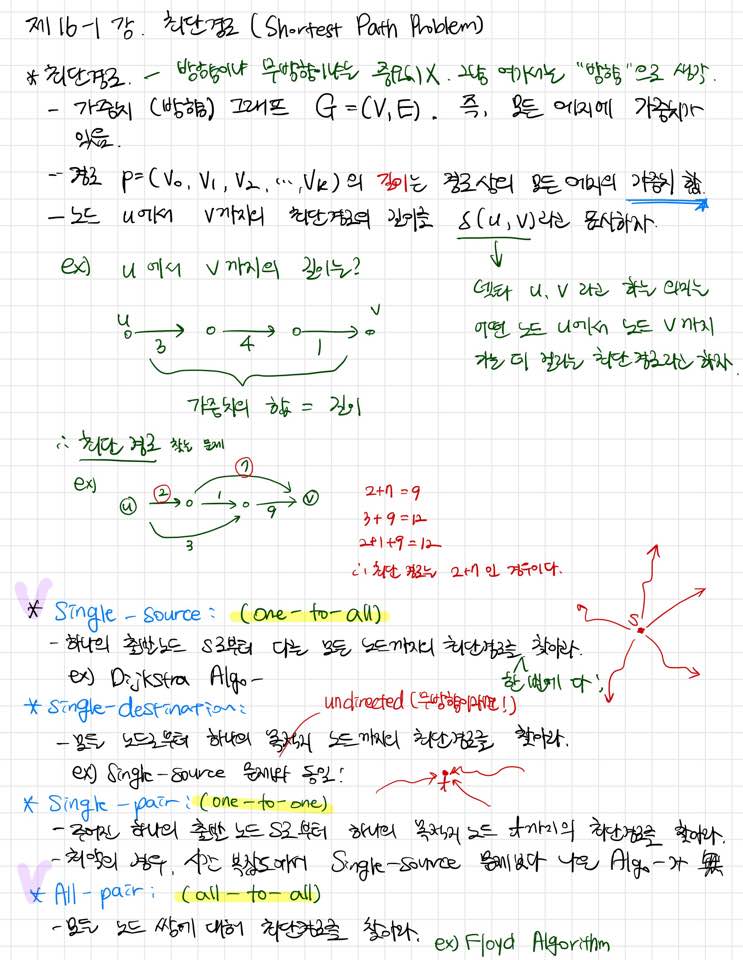 제 16-1 강. 최단경로 (Shortest Path Problem)
* 최단경로. - 방향이냐 무방향이냐는 중요X. 그냥 여기서는 "방향"으로 생각.
- 가중치 (방향) 그래프 G=(V,E). 즉, 모든 에지에 가중치가
있음.
- 경로 p=(V₀, V₁, V₂, ⋯, Vk)의 길이는 경로상의 모든 에지의 가중치 합.
- 노드 u에서 v까지의 최단경로의 길이를 δ(u,v)라고 표시하자.
ex) u에서 v까지의 길이는?
델타 u, v 라고 하는 의미는
어떤 노드 u에서 노드 v까지
가는 데 걸리는 최단경로라고 하자.
u 3 4 1 v
가중치의 합 = 길이
∴ 최단 경로 찾는 문제
ex)
u 2 1 9 v
7
3
2+7=9
3+9=12
2+1+9=12
∴ 최단 경로는 2+7 인 경우이다.
* Single-source: (one-to-all)
- 하나의 출발노드 S로부터 다른 모든 노드까지의 최단경로를 찾아라.
한번에 다!
ex) Dijkstra Algo-
S
* Single-destination:
undirected (무방향이라면!)
- 모든 노드로부터 하나의 목적지 노드까지의 최단경로를 찾아라.
ex) Single-source 문제와 동일!
t
* Single-pair: (one-to-one)
- 주어진 하나의 출발 노드 S로부터 하나의 목적지 노드 t까지의 최단경로를 찾아라.
- 최악의 경우, 시간 복잡도에서 Single-source 문제보다 나은 Algo-가 無
* All-pair: (all-to-all)
- 모든 노드 쌍에 대해 최단경로를 찾아라.
ex) Floyd Algorithm